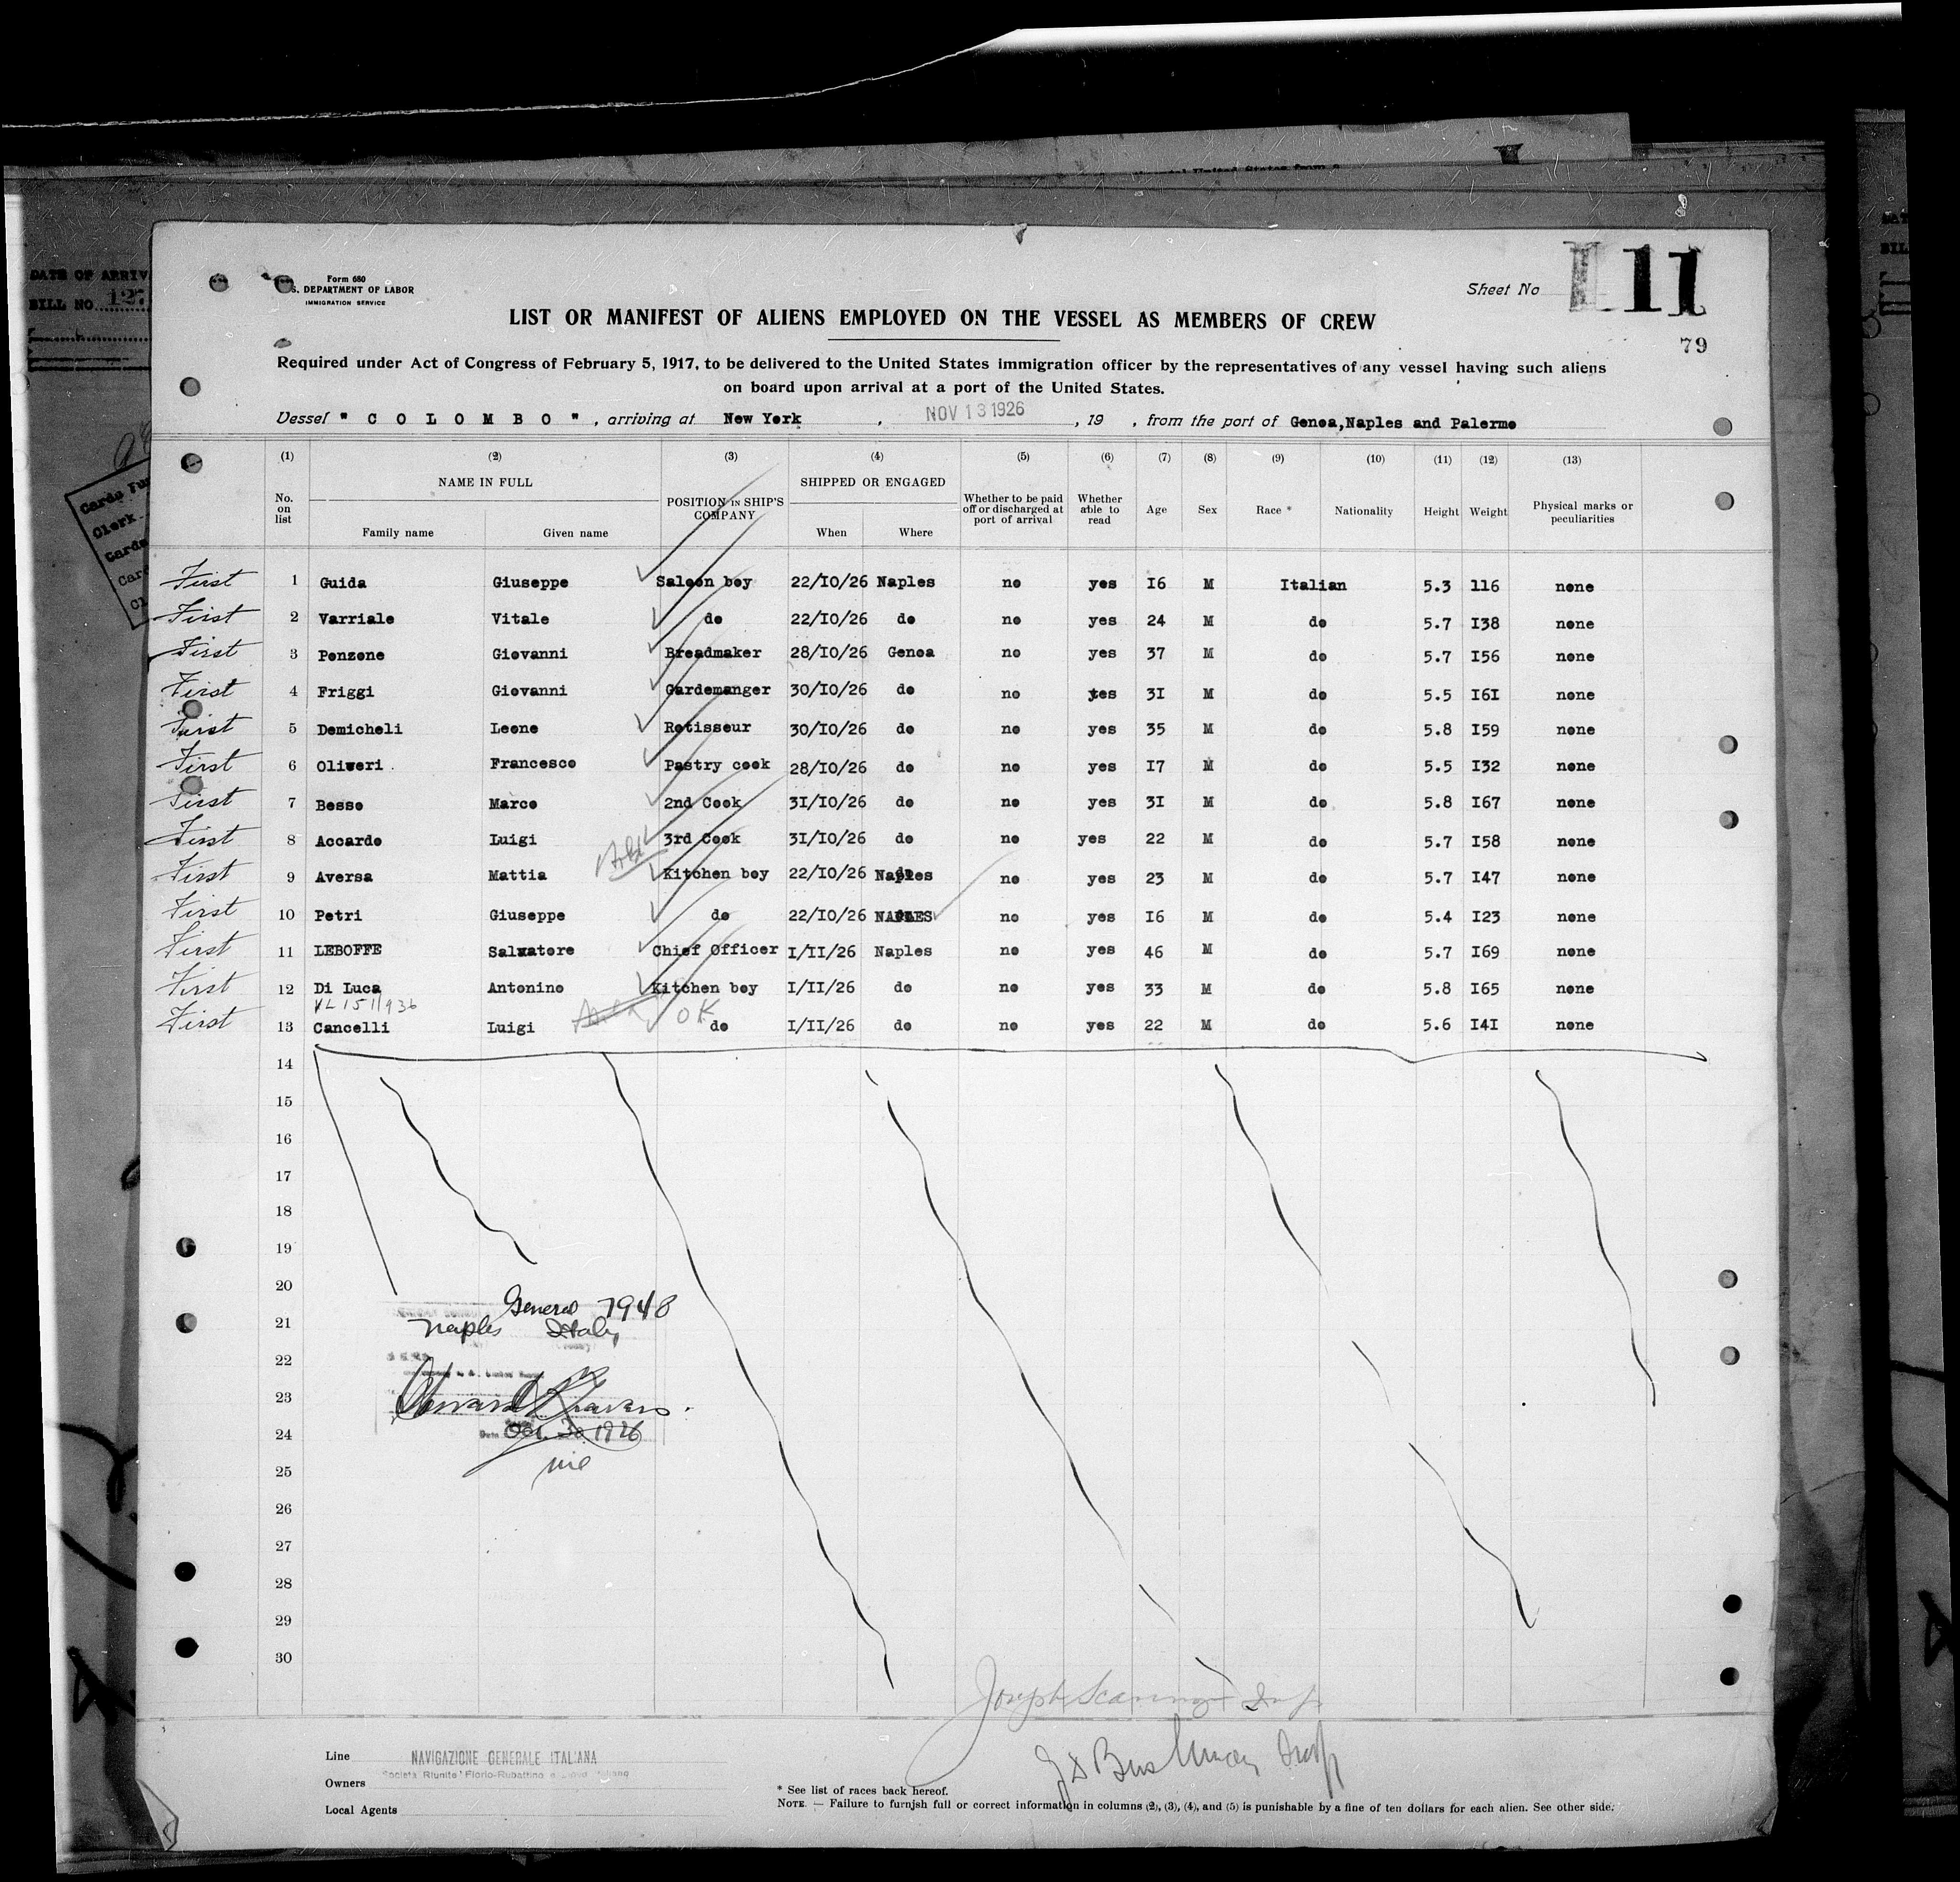 DATE OF ARRIV
BILL NO. 127
Form 680
S. DEPARTMENT OF LABOR
IMMIGRATION SERVICE
Sheet No 11
79
LIST OR MANIFEST OF ALIENS EMPLOYED ON THE VESSEL AS MEMBERS OF CREW
Required under Act of Congress of February 5, 1917, to be delivered to the United States immigration officer by the representatives of any vessel having such aliens
on board upon arrival at a port of the United States.
Vessel " C O L O M B O ", arriving at New York, NOV 13 1926, 19 , from the port of Genoa,Naples and Palermo
(1) (2) (3) (4) (5) (6) (7) (8) (9) (10) (11) (12) (13)
No. on list NAME IN FULL Family name Given name POSITION IN SHIP'S COMPANY SHIPPED OR ENGAGED When Where Whether to be paid off or discharged at port of arrival Whether able to read Age Sex Race * Nationality Height Weight Physical marks or peculiarities
First 1 Guida Giuseppe Saloon boy 22/IO/26 Naples no yes I6 M Italian 5.3 116 none
First 2 Varriale Vitale do 22/IO/26 do no yes 24 M do 5.7 I38 none
First 3 Penzone Giovanni Breadmaker 28/IO/26 Genoa no yes 37 M do 5.7 I56 none
First 4 Friggi Giovanni Gardemanger 30/IO/26 do no yes 3I M do 5.5 I6I none
First 5 Demicheli Leone Rotisseur 30/IO/26 do no yes 35 M do 5.8 I59 none
First 6 Oliveri Francesco Pastry cook 28/IO/26 do no yes I7 M do 5.5 I32 none
First 7 Besso Marco 2nd Cook 3I/IO/26 do no yes 3I M do 5.8 I67 none
First 8 Accardo Luigi 3rd Cook 3I/IO/26 do no yes 22 M do 5.7 I58 none
First 9 Aversa Mattia Kitchen boy 22/IO/26 Naples no yes 23 M do 5.7 I47 none
First 10 Petri Giuseppe do 22/IO/26 NAPLES no yes I6 M do 5.4 I23 none
First 11 LEBOFFE Salvatore Chief Officer I/II/26 Naples no yes 46 M do 5.7 I69 none
First 12 Di Luca Antonino Kitchen boy I/II/26 do no yes 33 M do 5.8 I65 none
VL 1511936 OK
First 13 Cancelli Luigi do I/II/26 do no yes 22 M do 5.6 I4I none
14
15
16
17
18
19
20
General 7948
21
Naples Italy
22
23
24
Date Oct. 30 1926
25
26
27
28
29
30
Joseph Insp
J S Bushman Insp
Line NAVIGAZIONE GENERALE ITALIANA
Società Riunite Florio-Rubattino e Lloyd Italiano
Owners
Local Agents
* See list of races back hereof.
NOTE. — Failure to furnish full or correct information in columns (2), (3), (4), and (5) is punishable by a fine of ten dollars for each alien. See other side.